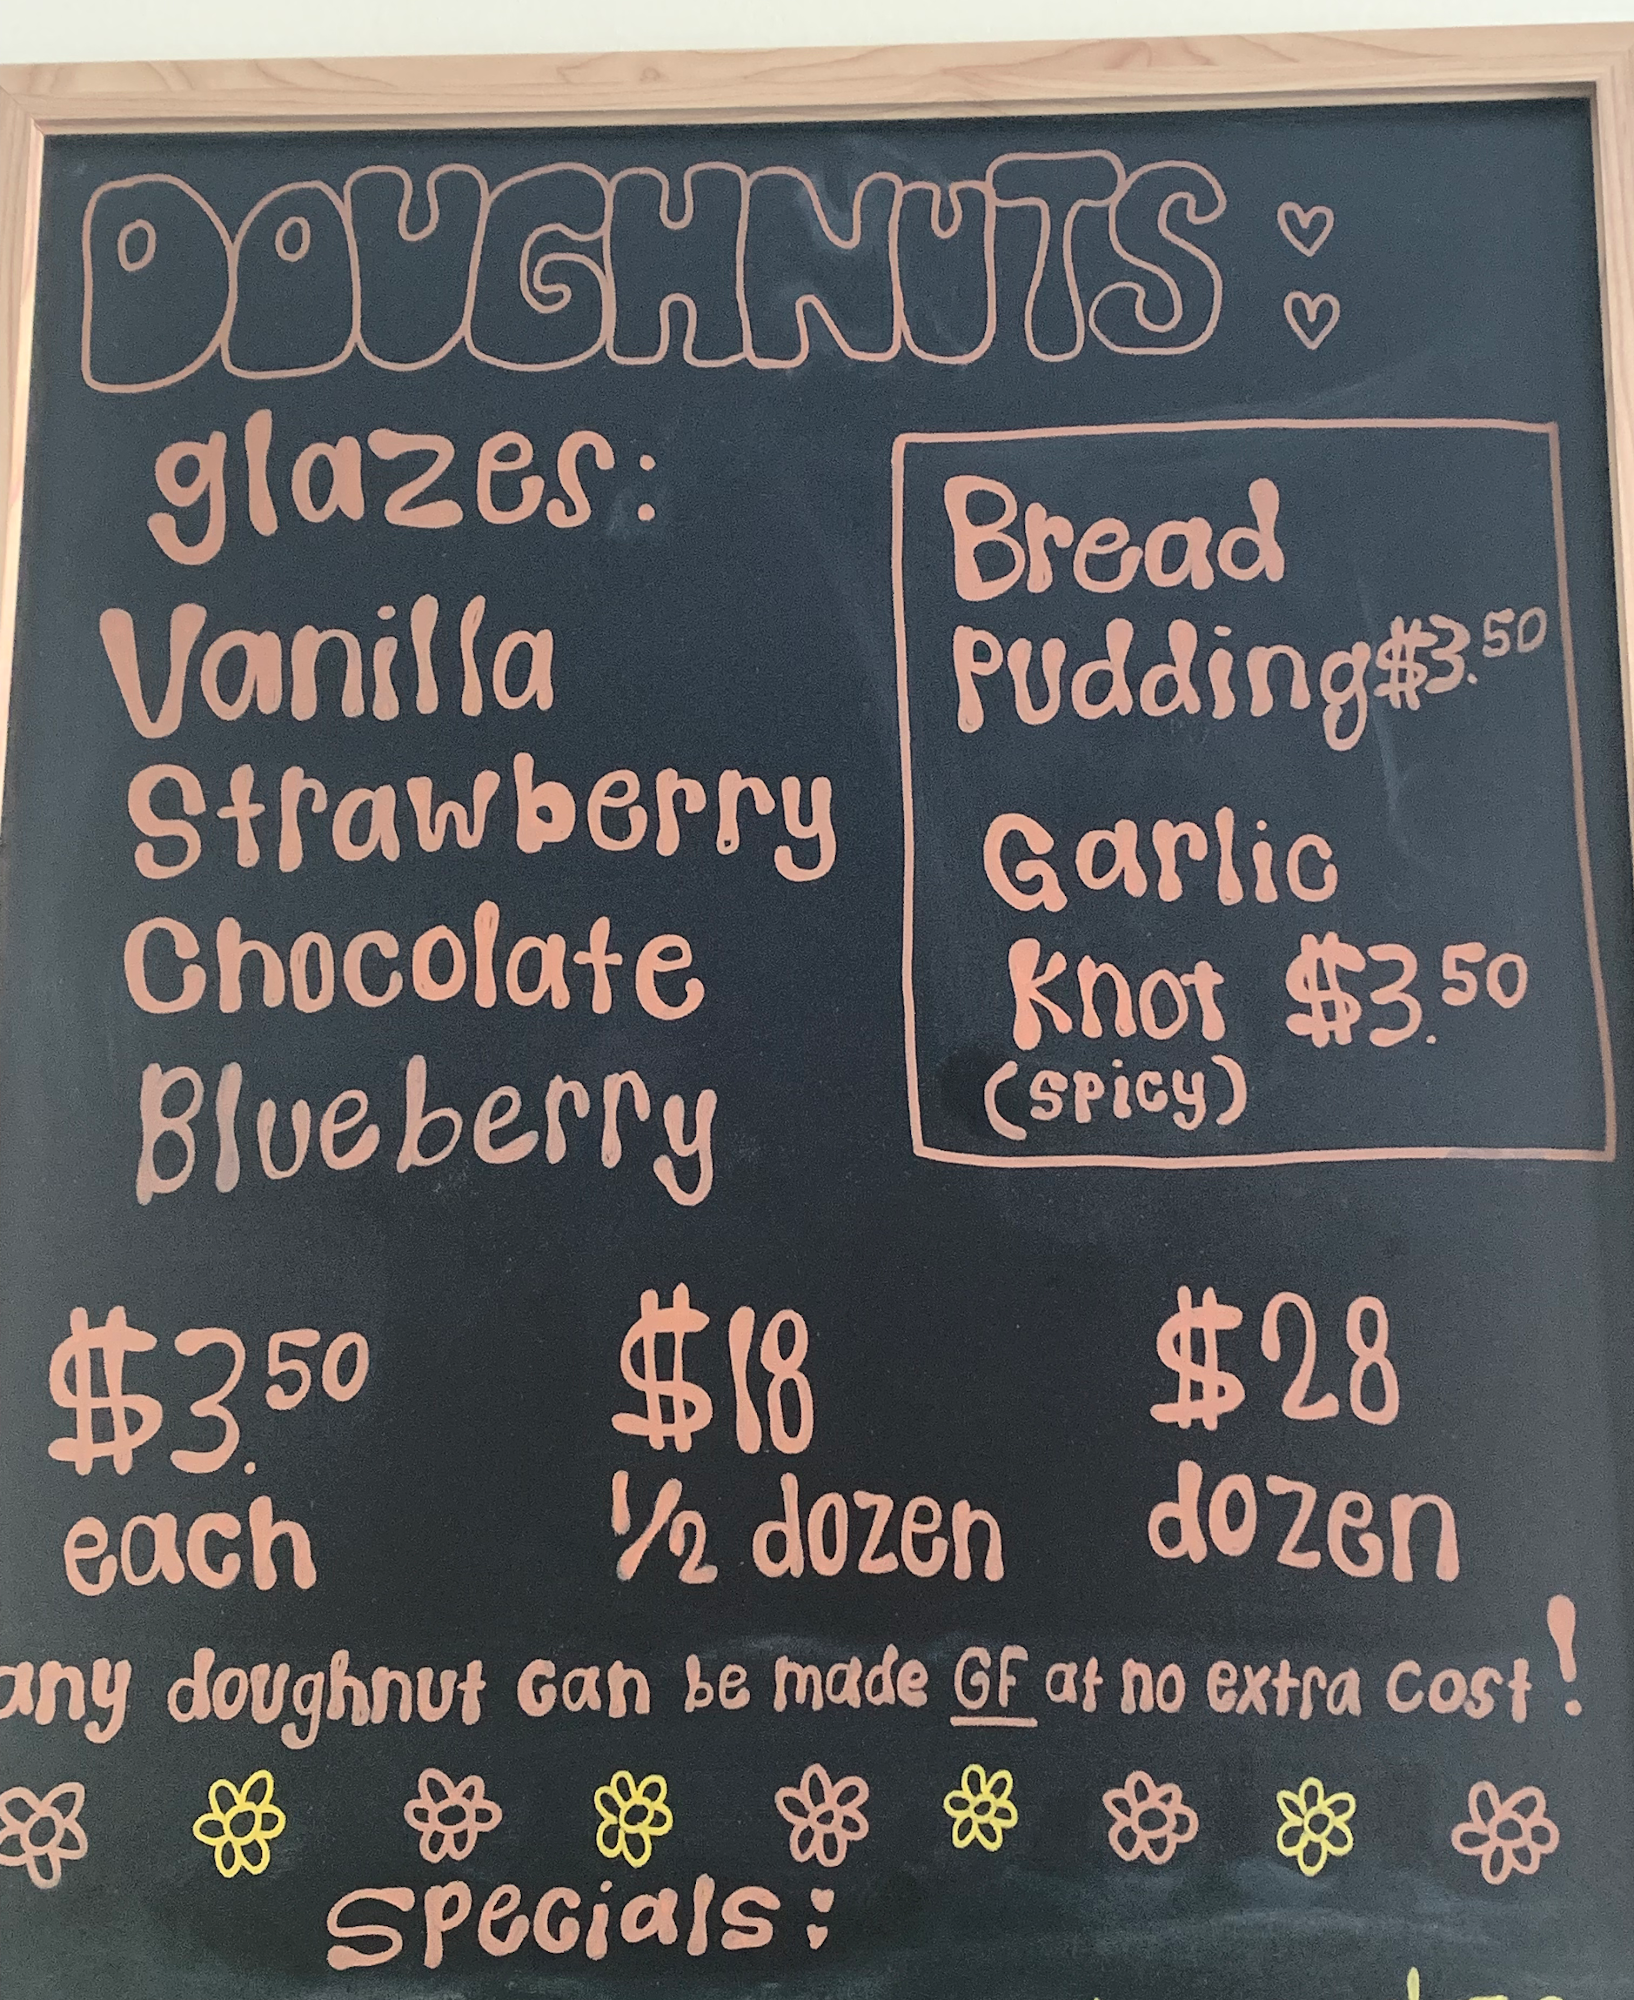 DOUGHNUTS:
glazes:
Vanilla
Strawberry
Chocolate
Blueberry
Bread
Pudding $3.50
Garlic
Knot $3.50
(spicy)
$3.50
each
$18
1/2 dozen
$28
dozen
any doughnut can be made GF at no extra cost!
Specials: